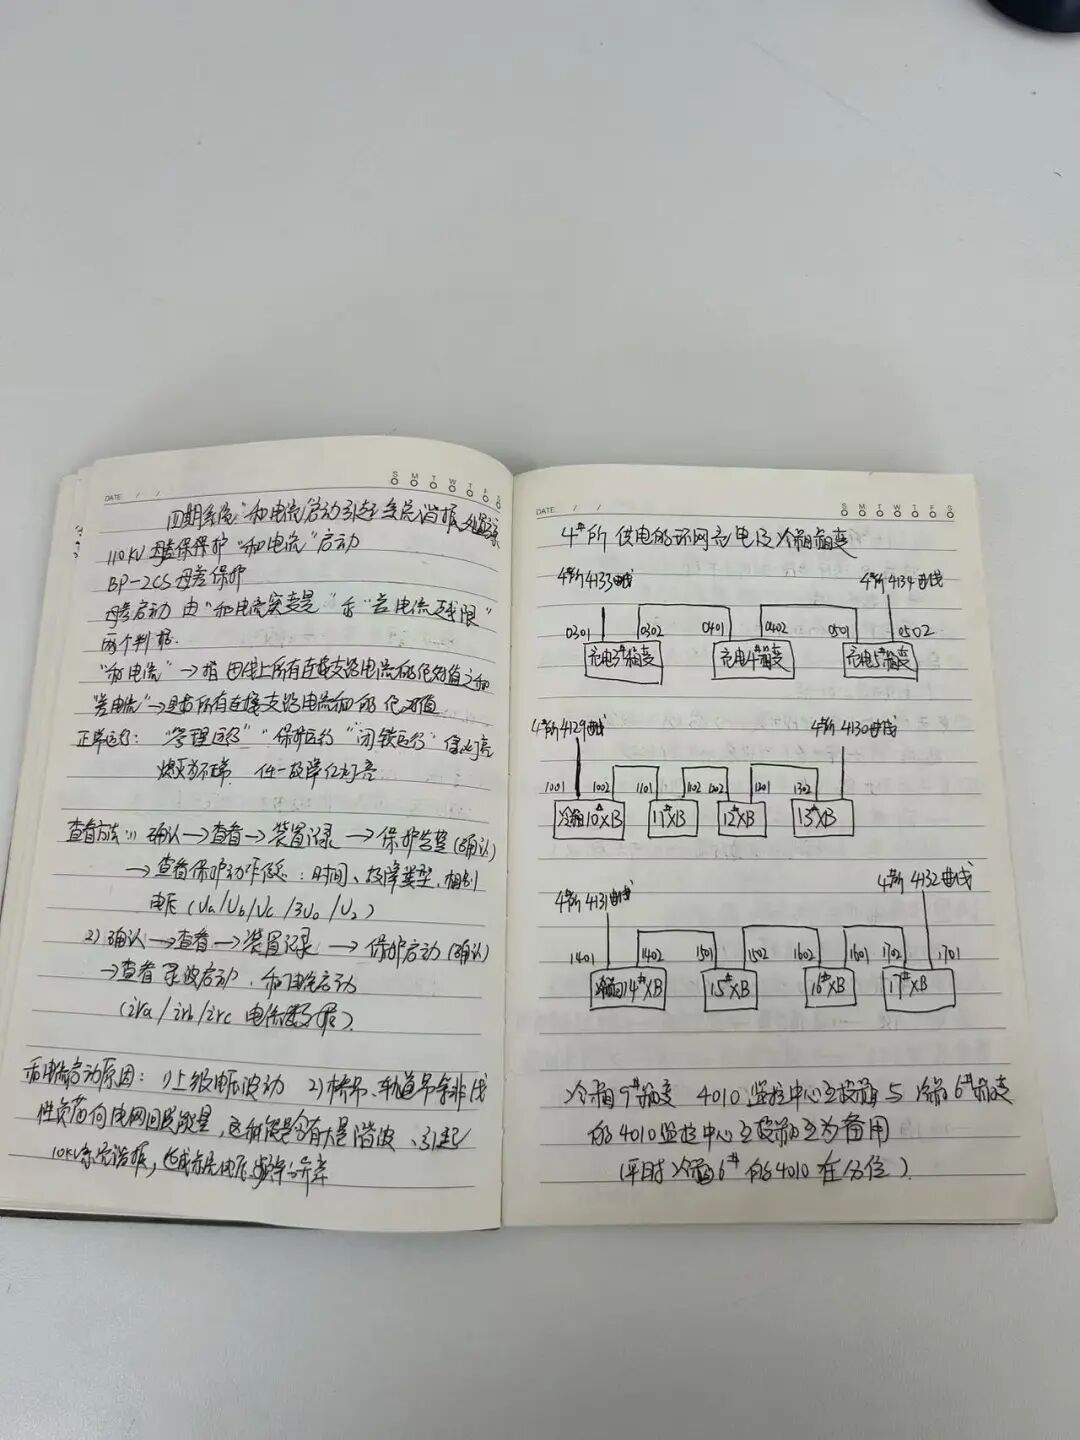 DATE / /
S M T W T F S
四期系统"和电流"启动引起系统谐振
110KV母差保护"和电流"启动
BP-2CS母差保护
母差启动 由"和电流突变量"和"差电流越限"
两个判据.
"和电流"→指 母线上所有连接支路电流的绝对值之和
"差电流"→是指所有连接支路电流和的绝对值
正常运行: "管理运行""保护运行""闭锁运行"
熄灭为不正常 任一故障红灯亮
查看方法:1)确认→查看→装置记录→保护告警(确认)
→查看保护动作信息:时间、故障类型、相别
电压(Ua/Ub/Uc/3U0/U2)
2)确认→查看→装置记录→保护启动(确认)
→查看录波启动、和电流启动
(Ira/Irb/Irc 电流数据).
和电流启动原因: 1)上级电压波动 2)桥吊、轨道吊等非线
性负荷向电网回馈能量,这种能量含有大量谐波、引起
10KV系统谐振,造成系统电压、频率异常
DATE / /
S M T W T F S
4#所供电的环网充电及冷箱箱变
4#所4133出线 4#所4134出线
0301 0302 0401 0402 0501 0502
充电3#箱变 充电4#箱变 充电5#箱变
4#所4129出线 4#所4130出线
1001 1002 1101 1102 1202 1301 1302
冷箱10#XB 11#XB 12#XB 13#XB
4#所4131出线 4#所4132出线
1401 1402 1501 1502 1602 1601 1702 1701
冷箱14#XB 15#XB 16#XB 17#XB
冷箱9#箱变 4010监控中心互投箱与冷箱6#箱变
的4010监控中心互投箱互为备用
(平时冷箱6#的4010在分位).